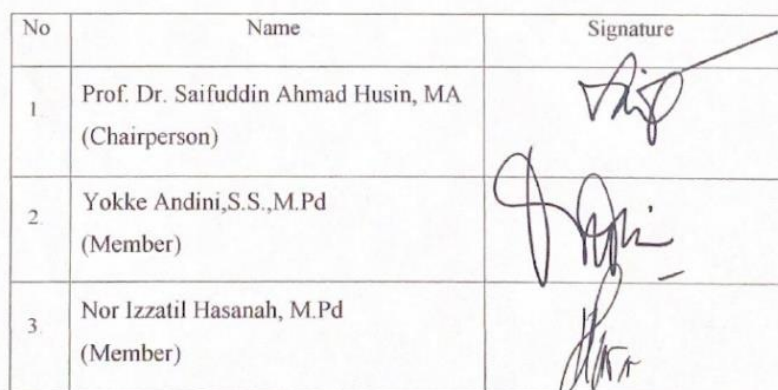 No Name Signature
1. Prof. Dr. Saifuddin Ahmad Husin, MA
(Chairperson)
2. Yokke Andini,S.S.,M.Pd
(Member)
3. Nor Izzatil Hasanah, M.Pd
(Member)